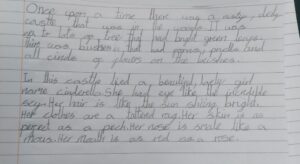 Once upon a time there was a rusty, dusty
castle that was in the woods. It was
up to lots of tree that had bright great leaves.
thin was bushes that had penrus, prells and
all cinds of plants on the bushes.
In this castle lived a beautiful, lucky girl
name cinderella. She had eye like the incredible
sey. Her hair is like the sun shiing bright.
Her clothes are a tattered rag. Her skin is as
perfect as a peach. Her nose is smale like a
mous. Her mouth is as red as a rose.